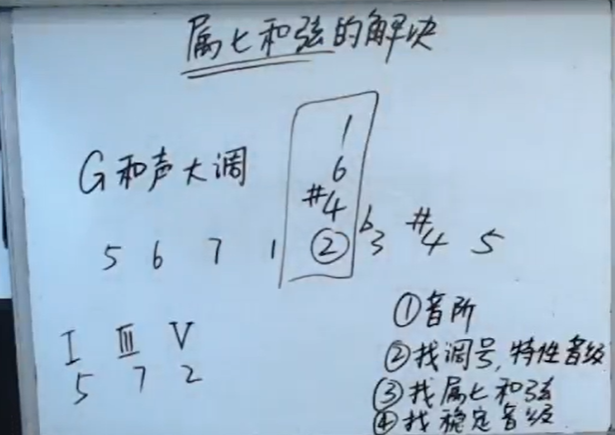 属七和弦的解决
G和声大调
1
6
#4
5 6 7 1 ② b3 #4 5
I III V
5 7 2
①音阶
②找调号,特性音级
③找属七和弦
④找稳定音级